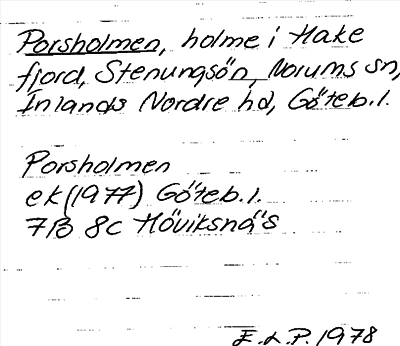 Porsholmen, holme i Hake
fjord, Stenungsön, Norums sn,
Inlands Nordre hd, Göteb.l.
Porsholmen
ek (1977) Göteb.l.
7B 8c Höviksnäs
E.L.P. 1978